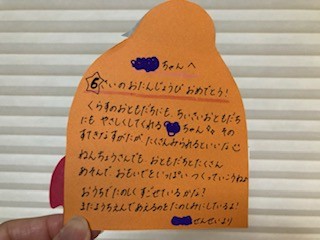 ちゃんへ
6さいのおたんじょうびおめでとう!
くらすのおともだちにも、ちいさいおともだち
にも やさしくしてくれる ちゃん その
すてきなすがたが、たくさんみられるといいな
ねんちょうさんでも おともだちとたくさん
あそんで おもいでといっぱい つくっていこうね
おうちでたのしくすごせているかな?
またようちえんであえるのを たのしみにしているよ!
せんせいより